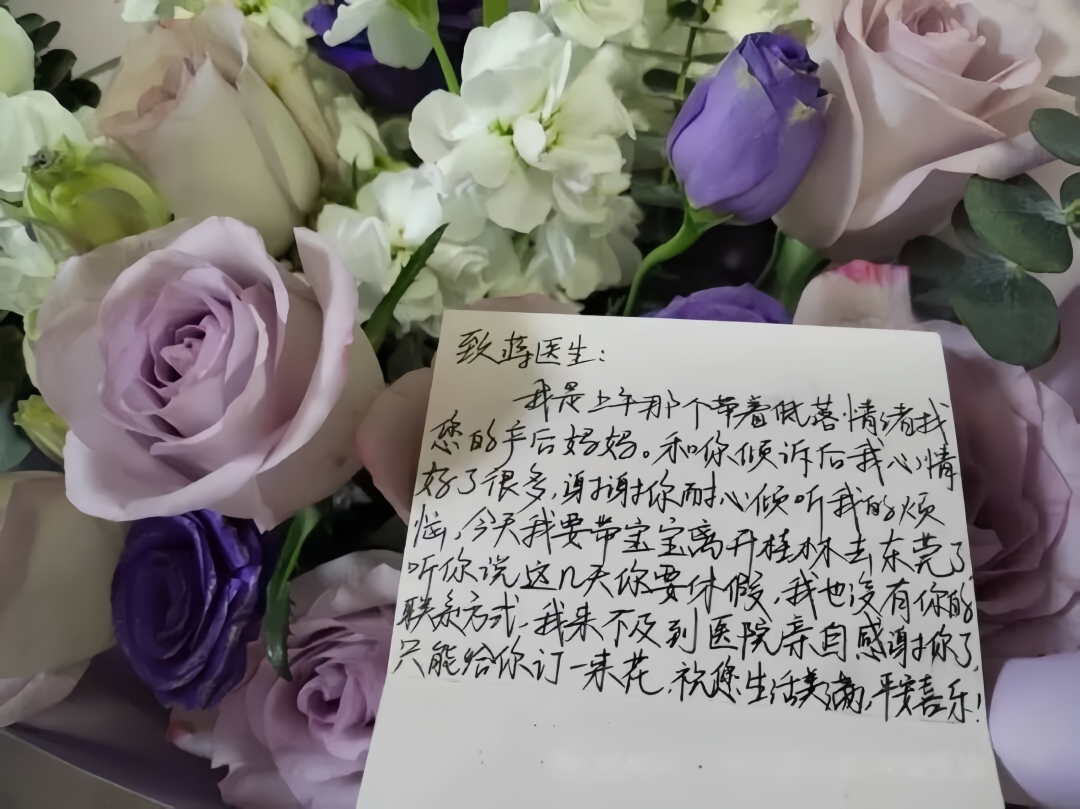 致蒋医生：
我是上午那个带着低落情绪找
您的手后妈妈。和你倾诉后我心情
好了很多，谢谢你耐心倾听我的烦
恼，今天我要带宝宝离开桂林去东莞了
听你说这几天你要休假，我也没有你的
联系方式，我来不及到医院亲自感谢你了，
只能给你订一束花，祝您生活美满，平安喜乐！